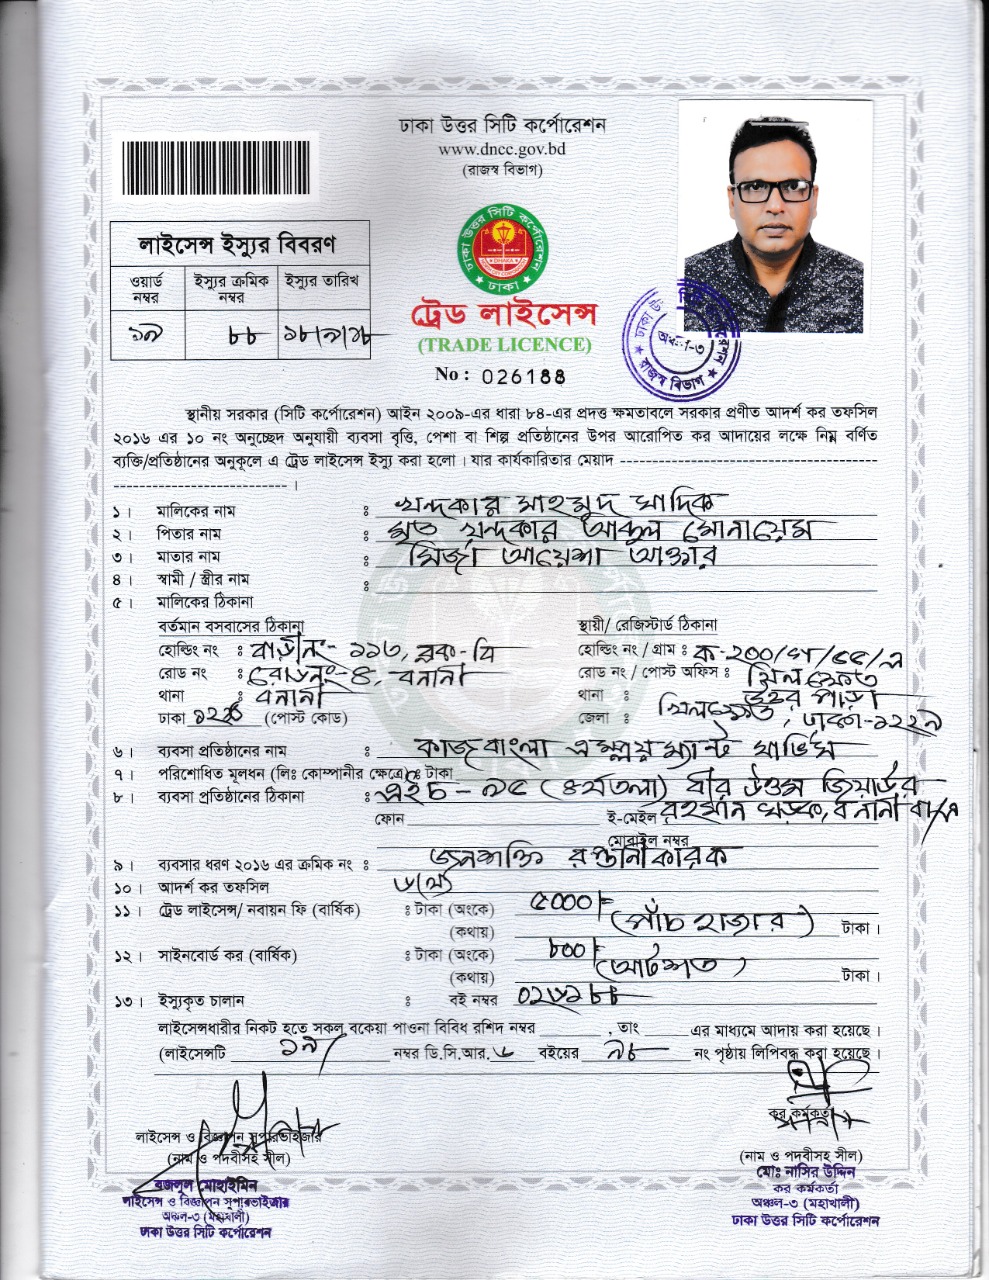 ঢাকা উত্তর সিটি কর্পোরেশন
www.dncc.gov.bd
(রাজস্ব বিভাগ)
লাইসেন্স ইস্যুর বিবরণ
ওয়ার্ড নম্বর ইস্যুর ক্রমিক নম্বর ইস্যুর তারিখ
১৯ ৮৮ ১৮/৭/১৮
ঢাকা উত্তর সিটি কর্পোরেশন
DHAKA
ঢাকা
ট্রেড লাইসেন্স
(TRADE LICENCE)
No : 026188
অঞ্চল-৩
রাজস্ব বিভাগ
স্থানীয় সরকার (সিটি কর্পোরেশন) আইন ২০০৯-এর ধারা ৮৪-এর প্রদত্ত ক্ষমতাবলে সরকার প্রণীত আদর্শ কর তফসিল
২০১৬ এর ১০ নং অনুচ্ছেদ অনুযায়ী ব্যবসা বৃত্তি, পেশা বা শিল্প প্রতিষ্ঠানের উপর আরোপিত কর আদায়ের লক্ষে নিম্ন বর্ণিত
ব্যক্তি/প্রতিষ্ঠানের অনুকূলে এ ট্রেড লাইসেন্স ইস্যু করা হলো। যার কার্যকারিতার মেয়াদ
১। মালিকের নাম : খন্দকার মাহমুদ সাদিক
২। পিতার নাম : মৃত খন্দকার আব্দুল মোনায়েম
৩। মাতার নাম : মির্জা আয়েশা আক্তার
৪। স্বামী / স্ত্রীর নাম :
৫। মালিকের ঠিকানা
বর্তমান বসবাসের ঠিকানা স্থায়ী/ রেজিস্টার্ড ঠিকানা
হোল্ডিং নং : বাড়ী নং- ১১৬, ব্লক- বি হোল্ডিং নং / গ্রাম : ক-২০০/
রোড নং : রোড নং- ৪, বনানী রোড নং / পোস্ট অফিস : খিলক্ষেত
থানা : বনানী থানা : উত্তর পাড়া
ঢাকা (পোস্ট কোড) জেলা : খিলক্ষেত, ঢাকা-১২২৯
৬। ব্যবসা প্রতিষ্ঠানের নাম : কাজ বাংলা এমপ্লয়ম্যান্ট সার্ভিস
৭। পরিশোধিত মূলধন (লিঃ কোম্পানীর ক্ষেত্রে) : টাকা
৮। ব্যবসা প্রতিষ্ঠানের ঠিকানা : এইচ - ৯৫ (৪র্থ তলা) বীর উত্তম জিয়াউর
ফোন ই-মেইল রহমান সড়ক, বনানী বা/এ
মোবাইল নম্বর
৯। ব্যবসার ধরণ ২০১৬ এর ক্রমিক নং : জনশক্তি রপ্তানীকারক
১০। আদর্শ কর তফসিল
১১। ট্রেড লাইসেন্স/ নবায়ন ফি (বার্ষিক) : টাকা (অংকে) ৫০০০/=
(কথায়) (পাঁচ হাজার) টাকা।
১২। সাইনবোর্ড কর (বার্ষিক) : টাকা (অংকে) ৮০০/=
(কথায়) (আটশত) টাকা।
১৩। ইস্যুকৃত চালান : বই নম্বর ০২৬১৮৮
লাইসেন্সধারীর নিকট হতে সকল বকেয়া পাওনা বিবিধ রশিদ নম্বর , তাং এর মাধ্যমে আদায় করা হয়েছে।
(লাইসেন্সটি ১৯ নম্বর ডি.সি.আর. ৬ বইয়ের ৭৮ নং পৃষ্ঠায় লিপিবদ্ধ করা হয়েছে।
লাইসেন্স ও বিজ্ঞাপন সুপারভাইজার
(নাম ও পদবীসহ সীল)
বজলুল মোহাইমিন
লাইসেন্স ও বিজ্ঞাপন সুপারভাইজার
অঞ্চল-৩ (মহাখালী)
ঢাকা উত্তর সিটি কর্পোরেশন
কর কর্মকর্তা
(নাম ও পদবীসহ সীল)
মোঃ নাসির উদ্দিন
কর কর্মকর্তা
অঞ্চল-৩ (মহাখালী)
ঢাকা উত্তর সিটি কর্পোরেশন